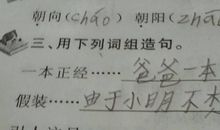 朝向(cháo) 朝阳(zhā
三、用下列词组造句。
一本正经……爸爸一本
假装……由于小明不